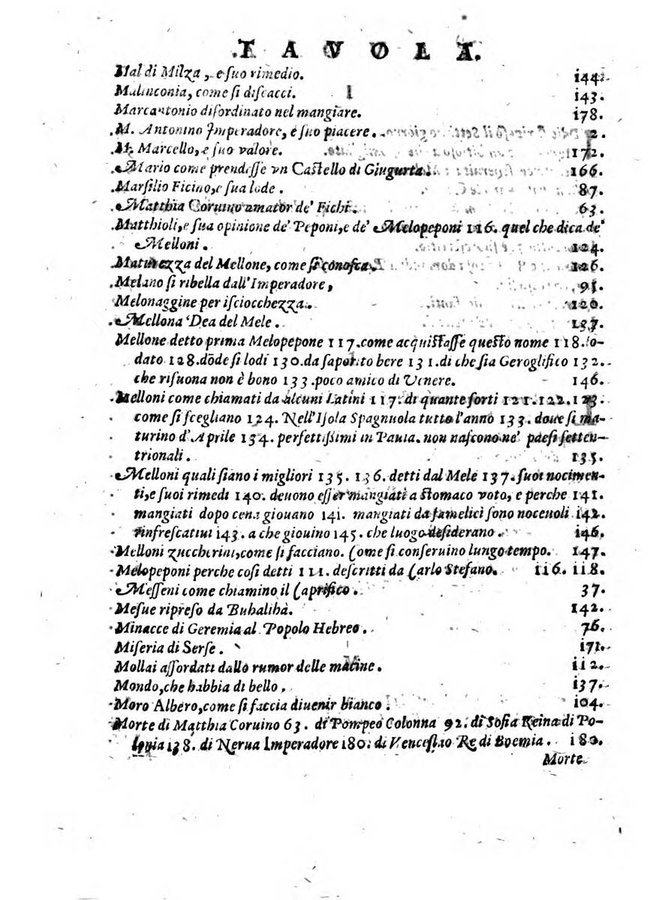 TAVOLA.
Mal di Milza, e suo rimedio. 144.
Malinconia, come si discacci. 143.
Marcantonio disordinato nel mangiare. 178.
M. Antonino Imperadore, e suo piacere. 2.
M. Marcello, e suo valore. 172.
Mario come prendesse vn Castello di Giugurta. 166.
Marsilio Ficino, e sua lode. 87.
Matthia Coruino amator de' Fichi. 63.
Matthioli, e sua opinione de' Peponi, e de' Melopeponi 116. quel che dica de'
Melloni. 124.
Maturezza del Mellone, come si conosca. 126.
Melano si ribella dall'Imperadore, 91.
Melonaggine per isciocchezza. 120.
Mellona Dea del Mele. 137.
Mellone detto prima Melopepone 117. come acquistasse questo nome 118. lo-
dato 128. dõde si lodi 130. da saporito bere 131. di che sia Geroglifico 132.
che risuona non è bono 133. poco amico di Venere. 146.
Melloni come chiamati da alcuni Latini 117. di quante sorti 121. 122. 123.
come si scegliano 124. Nell'Isola Spagnuola tutto l'anno 133. doue si ma-
turino d'Aprile 134. perfettissimi in Pauia. non nascono ne' paesi setten-
trionali. 135.
Melloni quali siano i migliori 135. 136. detti dal Mele 137. suoi nocimen-
ti, e suoi rimedi 140. deuono esser mangiati a stomaco voto, e perche 141.
mangiati dopo cena giouano 141. mangiati da famelici sono noceuoli 142.
rinfrescatiui 143. a che giouino 145. che luogo desiderano. 146.
Melloni zuccherini, come si facciano. Come si conseruino lungo tempo. 147.
Melopeponi perche cosi detti 111. descritti da Carlo Stefano. 116. 118.
Messeni come chiamino il Caprifico. 37.
Mesue ripreso da Buhalihà. 142.
Minacce di Geremia al Popolo Hebreo. 76.
Miseria di Serse. 171.
Mollai assordati dallo rumor delle macine. 112.
Mondo, che habbia di bello. 137.
Moro Albero, come si faccia diuenir bianco. 104.
Morte di Matthia Coruino 63. di Pompeo Colonna 92. di Sofia Reina di Po-
lonia 138. di Nerua Imperadore 180. di Venceslao Re di Boemia. 180.
Morte